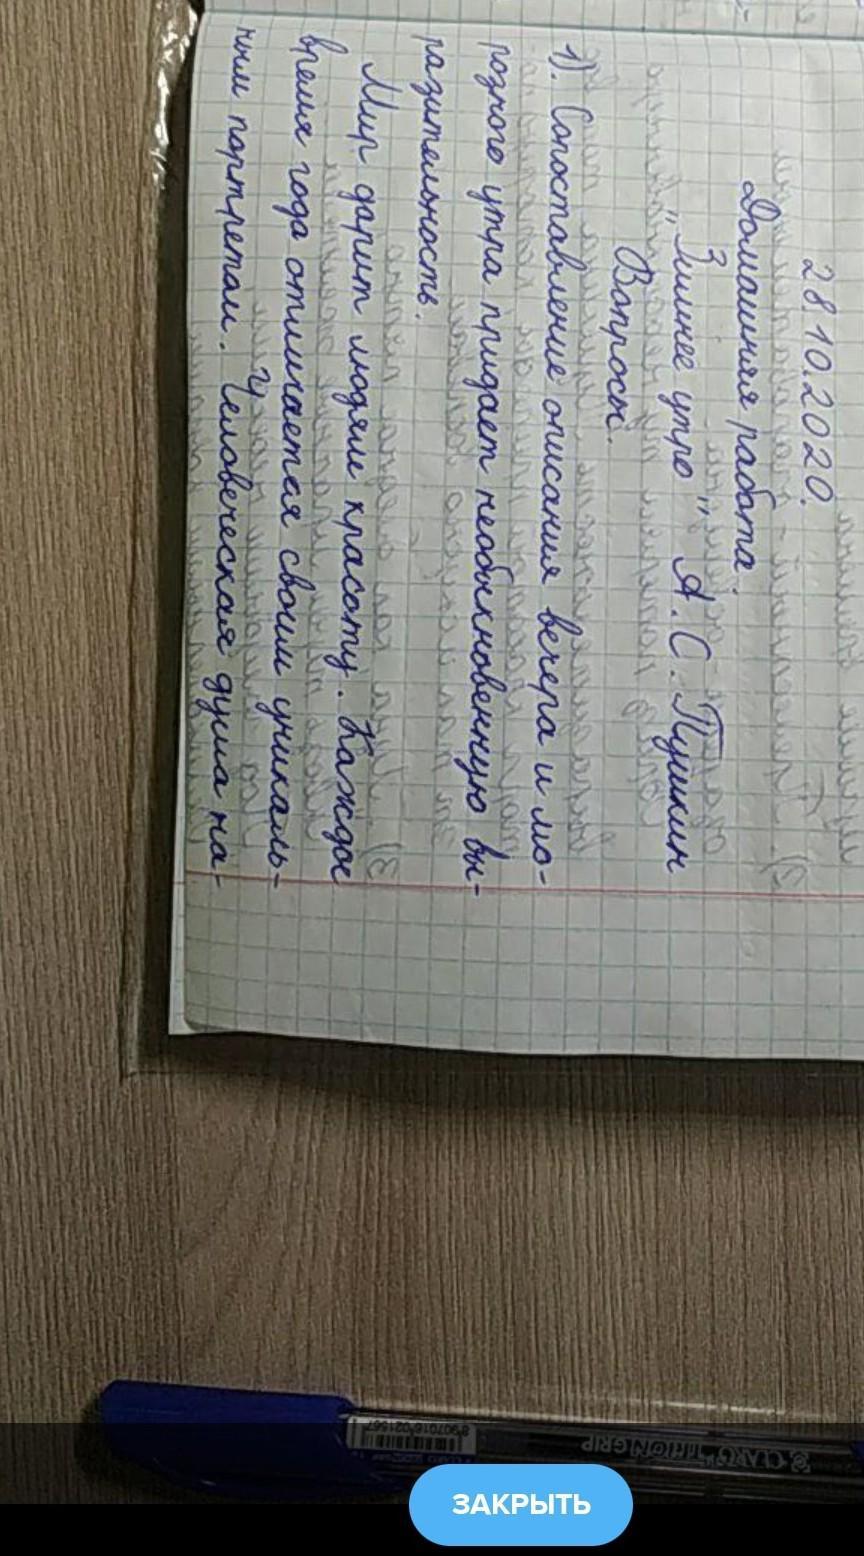 28.10.2020.
Домашняя работа.
"Зимнее утро" А.С. Пушкин
Вопросы.
1). Сопоставление описания вечера и мо-
розного утра придает необыкновенную вы-
разительность.
Мир дарит людям красоту. Каждое
время года отличается своим уникаль-
ным портретом. Человеческая душа на-
8907016021567
CLARO TRION GRIP
ЗАКРЫТЬ